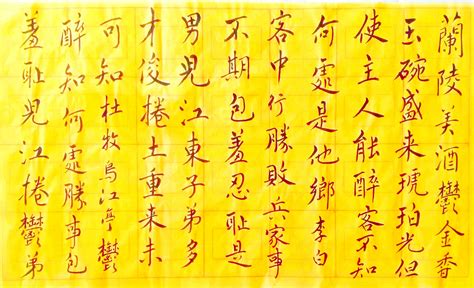 蘭陵美酒鬱金香
玉碗盛来琥珀光但
使主人能醉客不知
何處是他鄉李白
客中行勝敗兵家事
不期包羞忍耻是
男児江東子弟多
才俊捲土重来未
可知杜牧烏江亭鬱
醉知何處勝事包
羞耻児江捲鬱弟